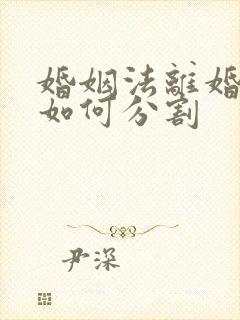 婚姻法離婚
如何分割
尹深